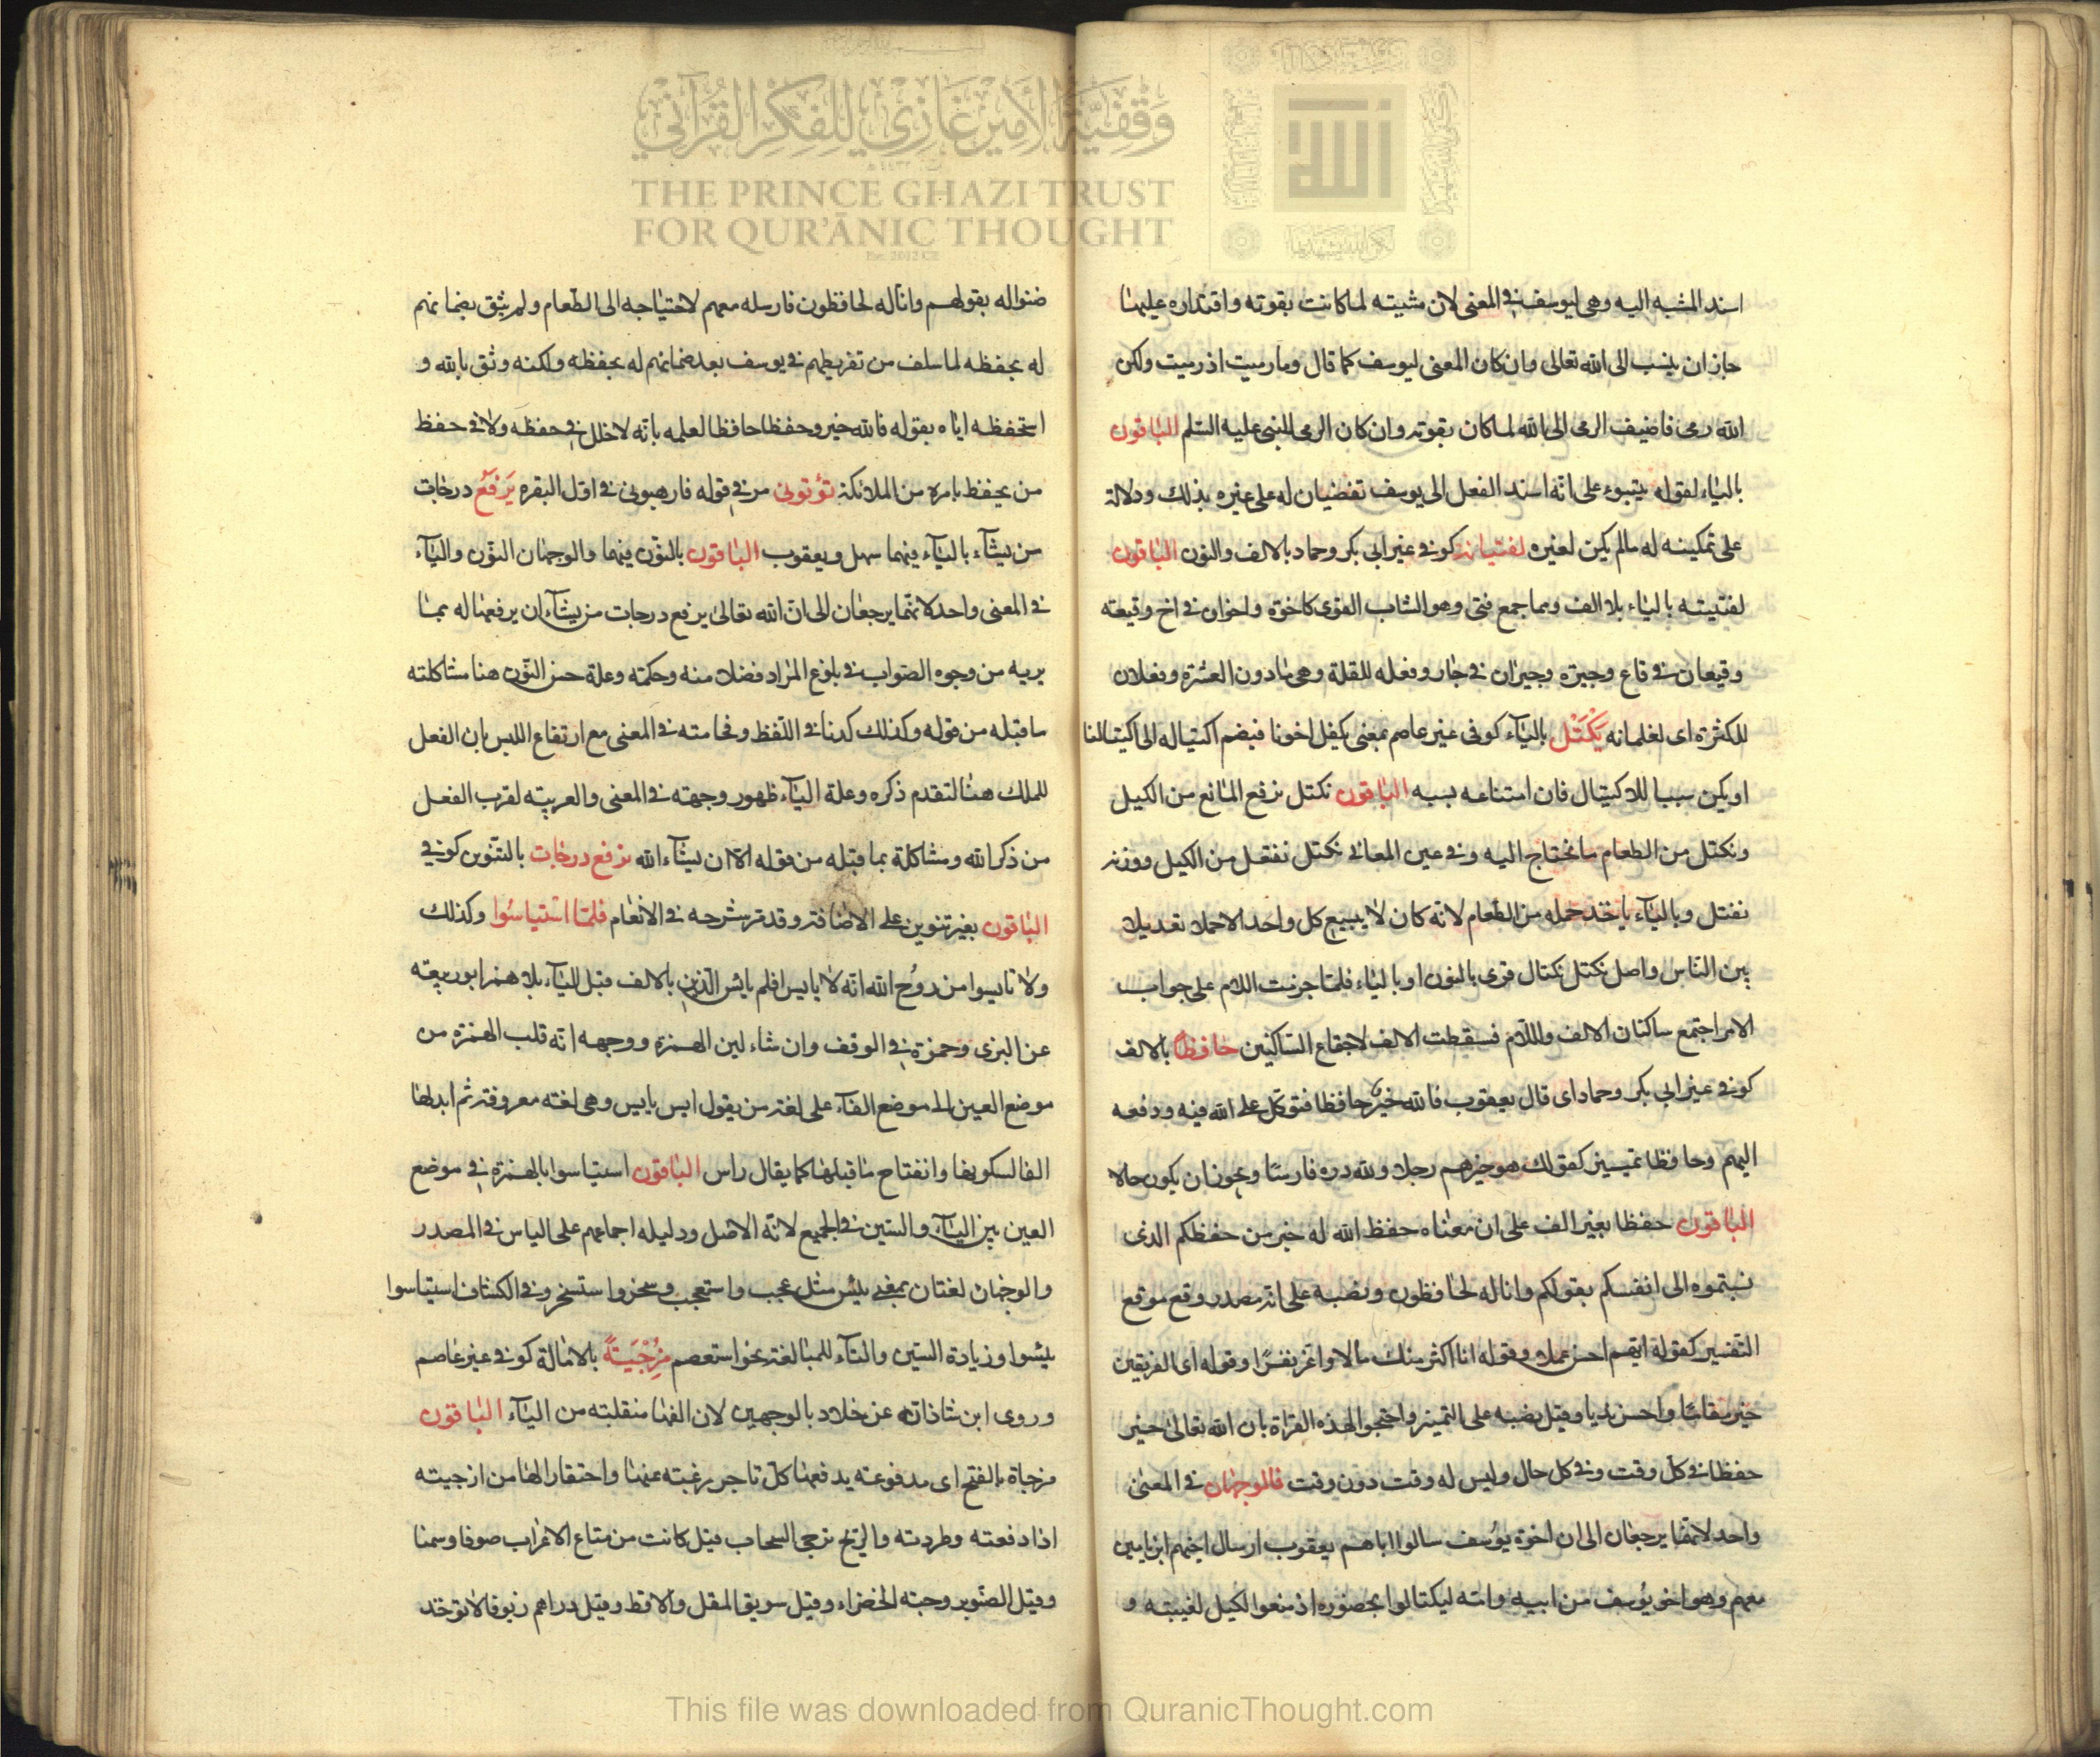 وَقْفِيَّةُ الأَمِيرْ غَازِي لِلْفِكْرِ القُرْآنِي
THE PRINCE GHAZI TRUST
FOR QUR'ĀNIC THOUGHT
Est. 2012 CE
اسند المشيه اليه وهى ليوسف فى المعنى لان مشيته لما كانت بقوته واقتداره عليها
جاز ان ينسب الى الله تعالى وان كان المعنى ليوسف كما قال وما رميت اذ رميت ولكن
الله رمى فاضيف الرمى الى الله لما كان بقوته وان كان الرمى للنبى عليه السلم الباقون
بالياء لقوله يتبوء على انه اسند الفعل الى يوسف تفضيان له على غيره بذلك ودلالة
على تمكينه له ما لم يكن لغيره لفتيانه كوفى غير ابى بكر وحماد بالالف والنون الباقون
لفتيته بالياء بلا الف وهما جمع فتى وهو الشاب القوى كاخوة واخوان فى اخ وقيعته
وقيعان فى قاع وجيرة وجيران فى جار وفعله للقلة وهى مادون العشرة وفعلان
للكثرة اى لغلمانه يَكْتَلْ بالياء كوفى غير عاصم بمعنى يكتل اخونا فيضم اكتياله الى اكتيالنا
او يكن سببا للاكتيال فان امتناعه بسببه الباقون نكتل نرفع المانع من الكيل
ونكتل من الطعام ما نحتاج اليه وفى عين المعانى نكتل نفتعل من الكيل ووزنه
نفتل وبالياء ياخذ حمله من الطعام لانه كان لا يبيع كل واحد الا حملا تعديلا
بين الناس واصل نكتل نكتال قرى بالنون او بالياء فلما جزمت اللام على جواب
الامر اجتمع ساكنان الالف واللام فسقطت الالف لاجتماع الساكنين حافظا بالالف
كوفى غير ابى بكر وحماد اى قال يعقوب فالله خير حافظا فتوكل على الله فيه ودفعه
اليهم وحافظا تمييز كقولك هو خيرهم رجلا ولله دره فارسا ويجوز ان يكون حالا
الباقون حفظا بغير الف على ان معناه حفظ الله له خير من حفظكم الذى
نسبتموه الى انفسكم بقولكم وانا له لحافظون ونصبه على انه مصدر وقع موقع
التفسير كقوله ايهم احسن عملا وقوله انا اكثر منك مالا واعز نفرا وقوله اى الفريقين
خير مقاما واحسن نديا وقيل نصبه على التمييز واحتجوا لهذه القراة بان الله تعالى خير
حفظا فى كل وقت وفى كل حال وليس له وقت دون وقت فالوجهان فى المعنى
واحد لانهما يرجعان الى ان اخوة يوسف سالوا اباهم يعقوب ارسال اخيهم ابن يامين
معهم وهو اخو يوسف من ابيه وامه ليكتالوا بحضوره اذ منعوا الكيل لغيبته و
ضنوا له بقولهم وانا له لحافظون فارسله معهم لاحتياجه الى الطعام ولم يثق بضمانهم
له بحفظه لما سلف من تفريطهم فى يوسف بعد ضمانهم له بحفظه ولكنه وثق بالله و
استحفظه اياه بقوله فالله خير وحفظا حافظا لعلمه بانه لا خلل فى حفظه ولا فى حفظ
من يحفظ بامره من الملائكة تؤتونى مر فى قوله فارهبونى فى اول البقره يَرفَعُ درجات
من يشاء بالياء فيهما سهل ويعقوب الباقون بالنون فيهما والوجهان النون والياء
فى المعنى واحد لانهما يرجعان الى ان الله تعالى يرفع درجات من يشاء ان يرفعها له بما
يريه من وجوه الصواب فى بلوغ المراد فضلا منه وحكمته وعلة حسن النون هنا مشاكلته
ما قبله من قوله وكذلك كدنا فى اللفظ وفخامته فى المعنى مع ارتفاع اللبس بان الفعل
للملك هنا لتقدم ذكره وعلة الياء ظهور وجهته فى المعنى والعربيته لقرب الفعل
من ذكر الله ومشاكلة بما قبله من قوله الا ان يشاء الله نرفع درجات بالتنوين كوفى
الباقون بغير تنوين على الاضافة وقد مر شرحه فى الانعام فلما استياسُوا وكذلك
ولا تايسوا من روح الله انه لا يايس افلم يايس الذين بالالف قبل الياء بلا همز ابو ربيعة
عن البزى وحمزة فى الوقف وان شاء لين الهمزة ووجهه انه قلب الهمزة من
موضع العين الى موضع الفاء على لغة من يقول ايس يايس وهى لغته معروفة ثم ابدلها
الفا لسكونها وانفتاح ما قبلها كما يقال راس الباقون استياسوا بالهمزة فى موضع
العين بين الياء والسين فى الجميع لانه الاصل ودليله اجماعهم على الياس فى المصدر
والوجهان لغتان بمعنى يئس مثل عجب واستعجب وسخروا ستسخر وفى الكشاف استياسوا
يئسوا وزيادة السين والتاء للمبالغة نحو استعصم مُزْجَيةً بالامالة كوفى غير عاصم
وروى ابن شاذان عن خلاد بالوجهين لان الفها منقلبته من الياء الباقون
مزجاة بالفتح اى مدفوعته يدفعها كل تاجر رغبته عنها واحتقارا لها من ازجيته
اذا دفعته وطردته والريح تزجى السحاب قيل كانت من متاع الاعراب صوفا وسمنا
وقيل الصنوبر وحبته الخضراء وقيل سويق المقل والاقط وقيل دراهم زيوفا لا توخذ
This file was downloaded from QuranicThought.com